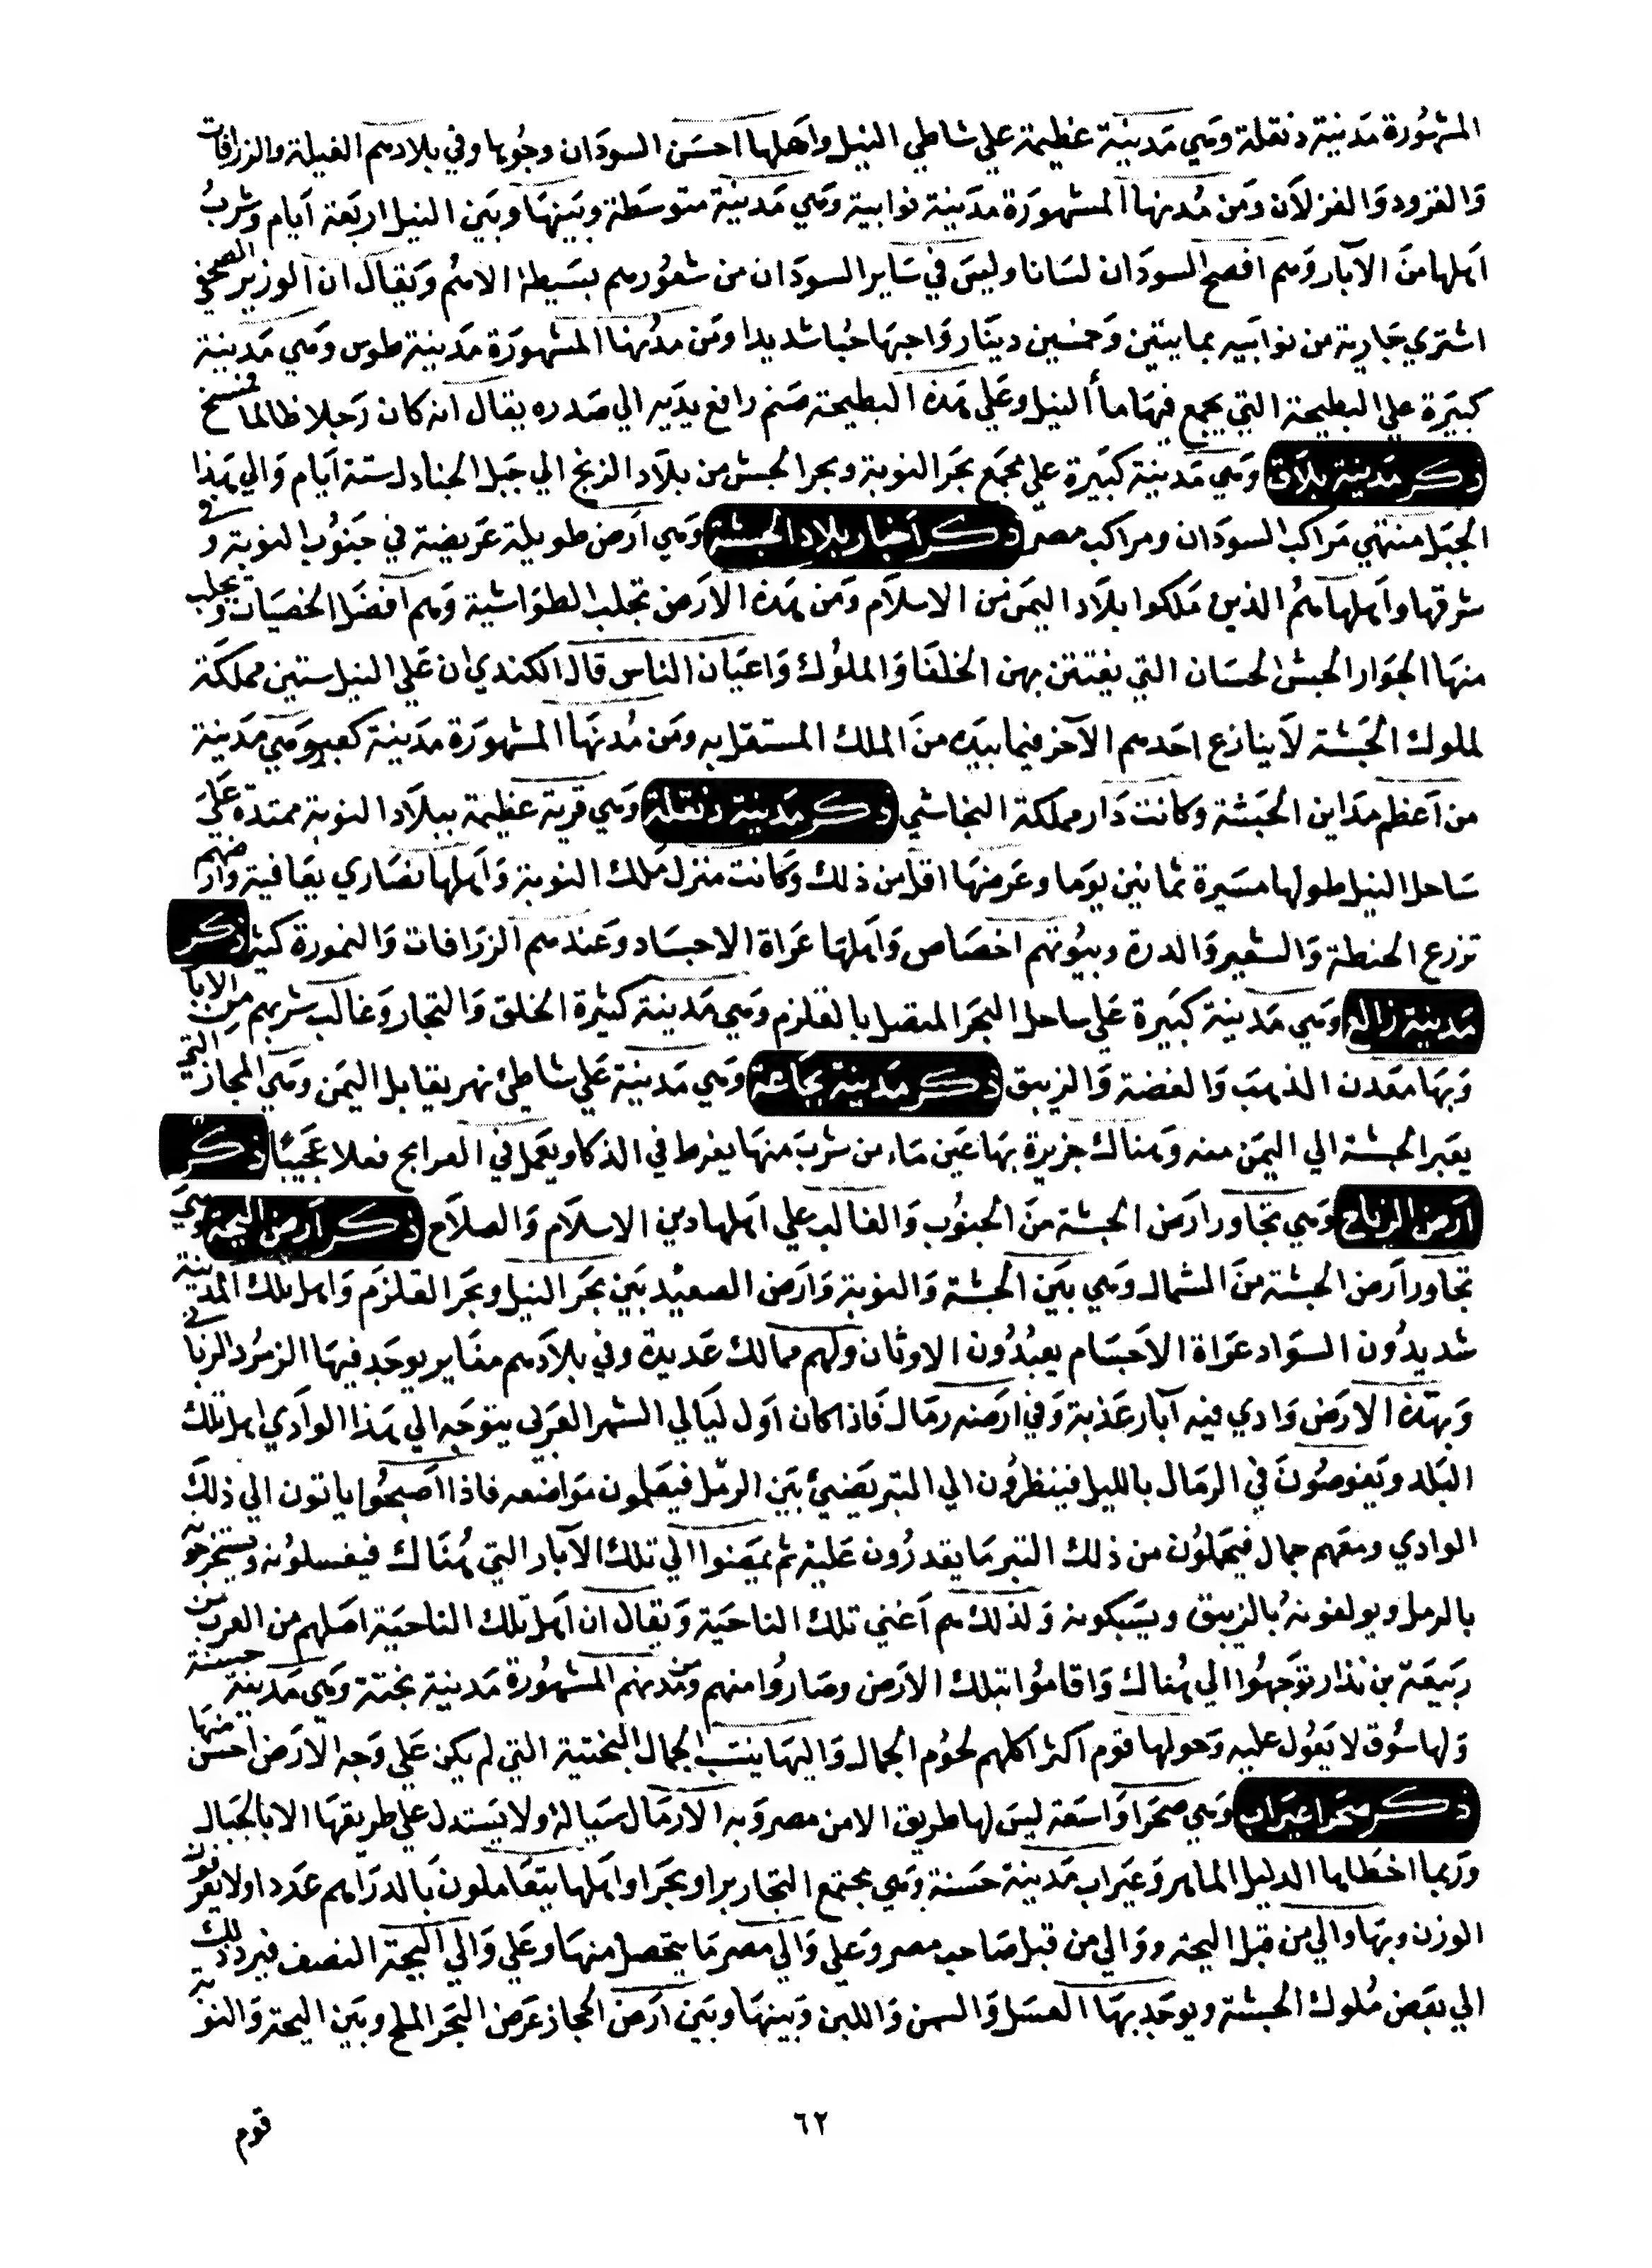 المشهورة مدينة دنقلة وهي مدينة عظيمة علي شاطي النيل واهلها احسن السودان وجوها وفي بلادهم الفيلة والزرافات
والقرود والغزلان ومن مدنها المشهورة مدينة نوابية وهي مدينة متوسطة وبينها وبين النيل اربعة ايام وشرب
اهلها من الآبار وهم افصح السودان لسانا وليس في ساير السودان من شعورهم بسيطة الا هم ويقال ان الوزير المصحفي
اشتري جارية من نوابيه بمايتين وخمسين دينار واحبها حبا شديدا ومن مدنها المشهورة مدينة طوس وهي مدينة
كبيرة علي البطيحة التي يجمع فيها مأ النيل وعلي هذه البطيحة صنم رافع يديه الي صدره يقال انه كان رجلا ظالما فمسخ
ذكر مدينة بلاق وهي مدينة كبيرة علي مجمع بحر النوبة وبحر الحبش من بلاد الزنج الي جبل الجنادل ستة ايام والي هذا
الجبل منتهي مراكب السودان ومراكب مصر ذكر اخبار بلاد الحبشة وهي ارض طويلة عريضة في جنوب النوبة و في
شرقها واهلها هم الذين ملكوا بلاد اليمن من الاسلام ومن هذه الارض تجلب الطواشية وهم افضل الخصيات ويجلب
منها الجوار الحبش الحسان التي يفتتن بهن الخلفا والملوك واعيان الناس قال الكندي ان علي النيل ستين مملكة
لملوك الحبشة لا ينازع احدهم الآخر فيما بيده من الملك المستقل به ومن مدنها المشهورة مدينة كعبر وهي مدينة
من اعظم مداين الحبشة وكانت دار مملكة النجاشي ذكر مدينة دنقلة وهي قرية عظيمة ببلاد النوبة ممتدة علي
ساحل النيل طولها مسيرة ثمانين يوما وعرضها اقل من ذلك وكانت منزل ملك النوبة واهلها نصاري يعاقبة وارضهم
تزرع الحنطة والشعير والدرة وبيوتهم اخصاص واهلها عراة الاجساد وعندهم الزرافات والنمورة كثير ذكر
مدينة زالع وهي مدينة كبيرة علي ساحل البحر المتصل بالقلزم وهي مدينة كثيرة الخلق والتجار وغالب شربهم من الابا
وبها معدن الذهب والفضة والزيبق ذكر مدينة بجاعة وهي مدينة علي شاطئ نهر يقابل اليمن وهي المجاز التي
يعبر الحبشة الي اليمن منه وهناك جزيرة بها عين ماء من شرب منها يفرط في الذكا ويعمل في العرايح فعلا عجيبا ذكر
ارض الزيلع وهي تجاور ارض الحبشة من الجنوب والغالب علي اهلها دين الاسلام والصلاح ذكر ارض البجة وهي
تجاور ارض الحبشة من الشمال وهي بين الحبشة والنوبة وارض الصعيد بين بحر النيل وبحر القلزم واهل تلك المدينة
شديدون السواد عراة الاجسام يعبدون الاوثان ولهم ممالك عديدة وفي بلادهم مغاير يوجد فيها الزمرد الربا في
وبهذه الارض وادي فيه آبار عذبة وفي ارضه رمال فاذا كان اول ليالي الشهر العربي يتوجه الي هذا الوادي اهل تلك
البلد ويغوصون في الرمال بالليل فينظرون الي التبر يضئ بين الرمل فيعلمون مواضعه فاذا اصبحوا ياتون الي ذلك
الوادي ومعهم جمال فيحملون من ذلك التبر ما يقدرون عليه ثم يمضوا الي تلك الآبار التي هناك فيغسلونه ويستخرجونه
بالرمل ويولفونه بالزيبق ويسبكونه ولذلك هم اغني تلك الناحية ويقال ان اهل تلك الناحية اصلهم من العرب من
ربيعة بن نذار توجهوا الي هناك واقاموا بتلك الارض وصاروا منهم ومن مدنهم المشهورة مدينة بختة وهي مدينة حسنة
ولها سوق لا يعول عليه وحولها قوم اكثر اكلهم لحوم الجمال واليها ينسب الجمال البختية التي لم يكن علي وجه الارض احسن منها
ذكر صحرا عيراب وهي صحرا واسعة ليس لها طريق الا من مصر وبه الا رمال سيالة ولا يستدل علي طريقها الا بالجبال
وربما اخطاها الدليل الماهر وعيراب مدينة حسنة وهي مجتمع التجار برا وبحرا واهلها يتعاملون بالدراهم عددا ولا يعرفون
الوزن وبها والي من قبل البجة ووالي من قبل صاحب مصر وعلي والي مصر ما يتحصل منها وعلي والي البجة النصف فيرد ذلك
الي بعض ملوك الحبشة ويوجد بها العسل والسمن واللبن وبينها وبين ارض الحجاز عرض البحر الملح وبين البجة والنوبة
٦٢
قوم